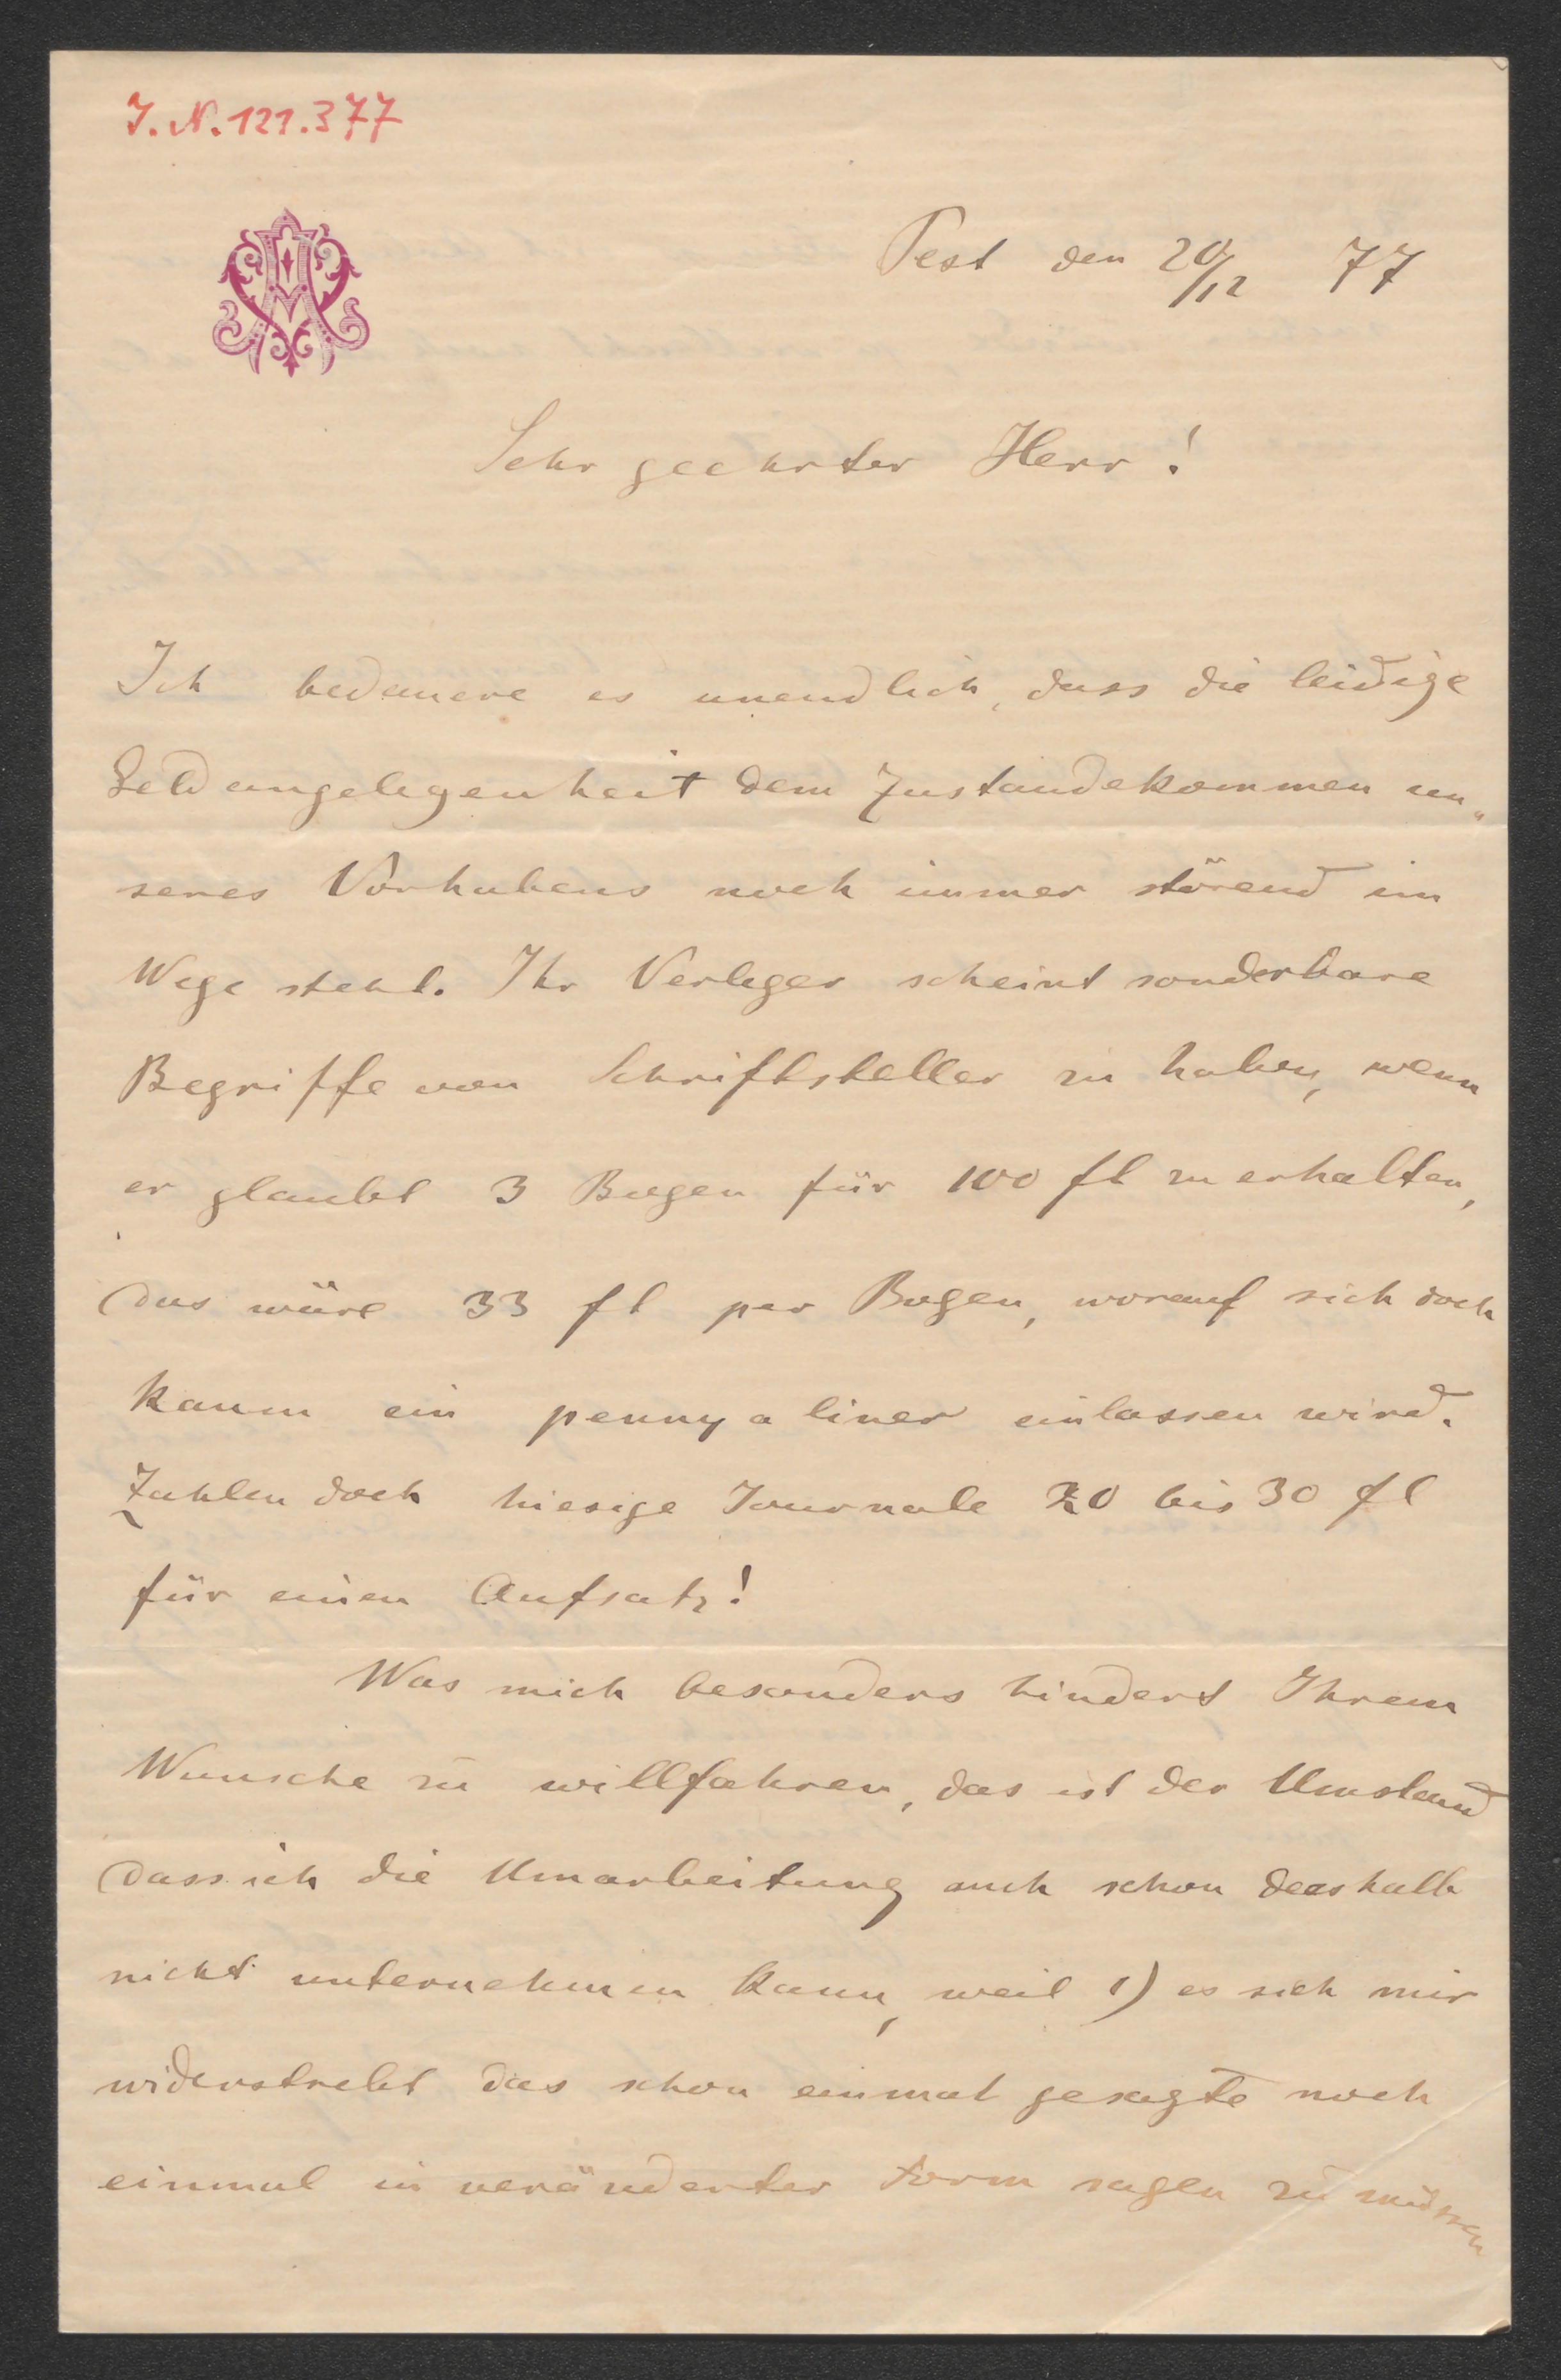 J. N. 121.377
Pest den 20/12 77
Sehr geehrter Herr!
Ich bedauere es unendlich, dass die leidige
Geldangelegenheit dem Zustandekommen un„
seres Vorhabens noch immer störend im
Wege steht. Ihr Verleger scheint sonderbare
Begriffe von Schriftsteller zu haben, wenn
er glaubt 3 Bogen für 100 fl zu erhalten,
das wäre 33 fl per Bogen, worauf sich doch
kaum ein penny a liner einlassen wird.
Zahlen doch hiesige Journale 20 bis 30 fl
für einen Aufsatz!
Was mich besonders hindert Ihrem
Wunsche zu willfahren, das ist der Umstand
dass ich die Umarbeitung auch schon desshalb
nicht unternehmen kann, weil 1) es sich mir
widerstrebt das schon einmal gesagte noch
einmal in veränderter Form sagen zu müssen